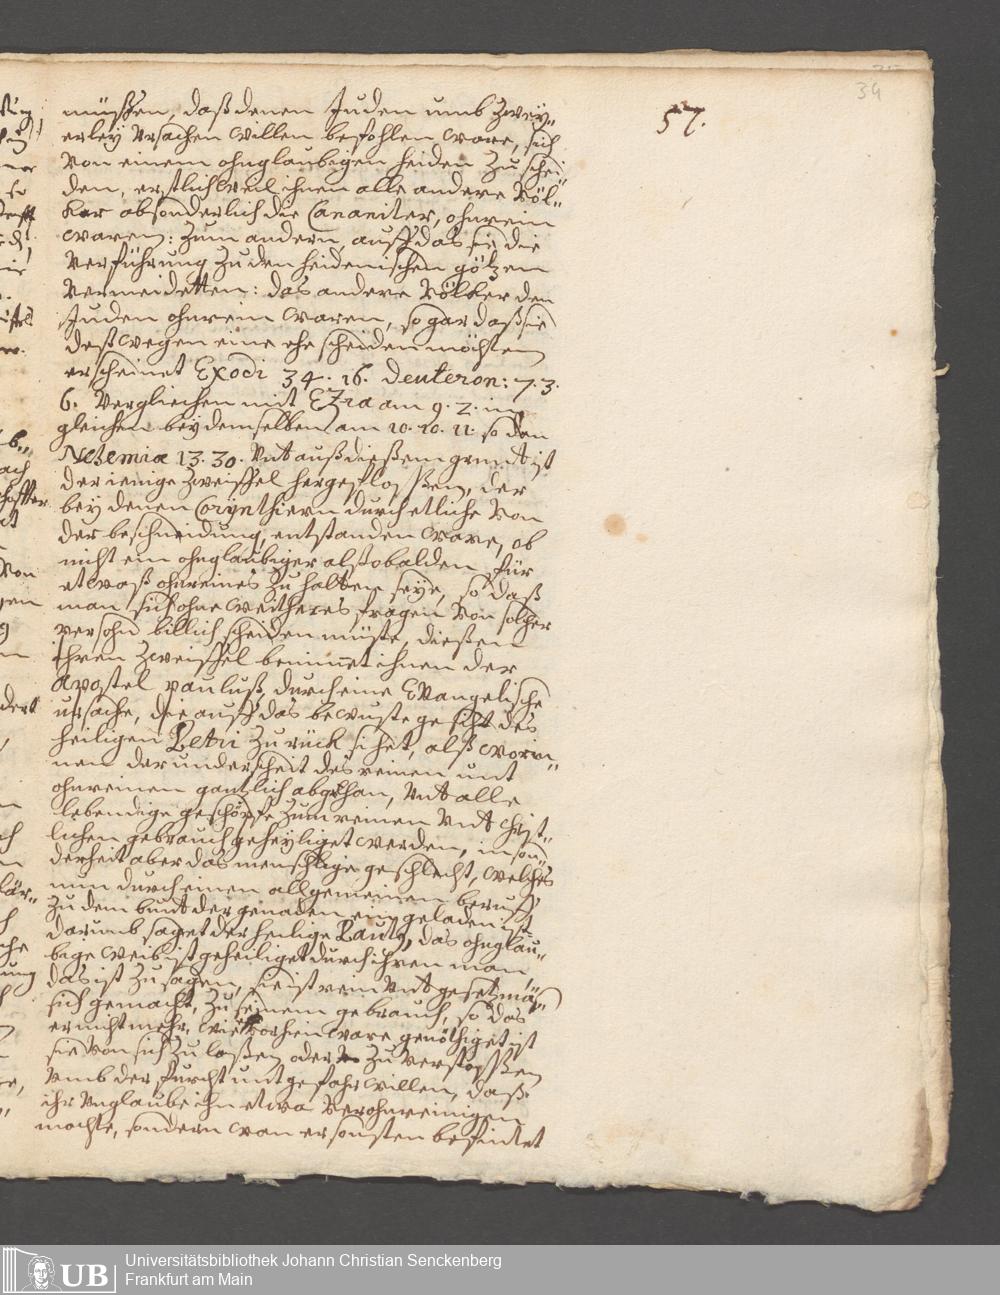 34
57.
müssen, daß denen Juden umb zwey„
erley Ursachen willen befohlen ware, sich
von einem ohnglaubigen heiden zu schei„
den, erstlich weil ihnen alle andere völ„
ker absonderlich die Cananiter, ohnrein
waren: zum andern, auff das sie die
verführung zu den heidenischen götzen
vermeidetten: das andere völker den
Juden ohnrein waren, so gar daß sie
deßwegen eine ehe scheiden möchten
erscheinet Exodi 34. 16. deuteron: 7. 3.
6. vergliechen mit Ezra am 9. 2. im
gleichen bey demselben am 10. 10. 11. so dan
Nehemiæ 13. 30. Unt auß dießem grunt ist
der ienige zweiffel hergeflossen, der
bey denen Corynthiern durch etliche von
der beschneidung, entstanden ware, ob
nicht ein ohnglaubiger alsobalden für
etwaß ohnreines zu halten seye, so daß
man sich ohne weitheres fragen von solcher
persohn billich scheiden müste, dießen
ihren zweiffel benimmet ihnen der
Apostel pauluß, durch eine Evangelische
ursache, die auff das bewuste gesicht des
heiligen Petri zurück sihet, alß worin„
nen der underscheit des reinen unt
ohnreinen gantzlich abgethan, Unt alle
lebendige geschöpfe zum reinen Unt christ„
lichen gebrauch geheyliget werden, inson„
derheit aber das menschlige geschlecht, welches
nun durch einen allgemeinen beruff
zu dem bunt der genaden eingeladen ist
darumb saget der heilige Paulus, das ohnglau„
bige weib ist geheiliget durch ihren man,
das ist zu sagen, sie ist rein Unt gesetzmäs„
sich gemacht, zu seinem gebrauch, so das
er nicht mehr, wie vorhin ware, genöthiget ist
sie von sich zu laßen oder zu verstossen
Umb der furcht unt gefahr willen, daß
ihr Unglaube ihn etwa verohnreinigen
mochte, sondern wan er sonsten befindet
Universitätsbibliothek Johann Christian Senckenberg
Frankfurt am Main
UB